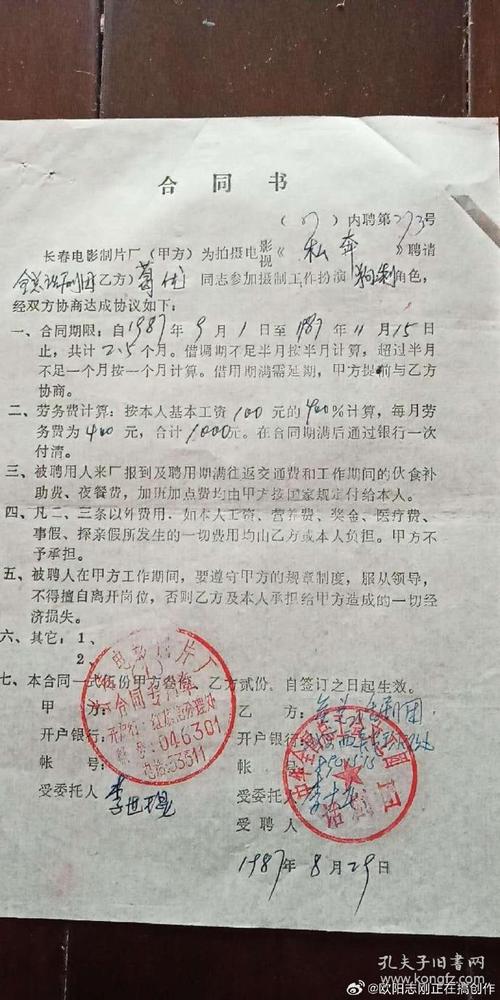 合同书
(87)内聘第273号
长春电影制片厂(甲方)为拍摄电影视《私奔》聘请
全总话剧团乙方)葛优同志参加摄制工作扮演角色,
经双方协商达成协议如下:
一、合同期限:自1987年9月1日至1987年11月15日
止,共计2.5个月。借调期不足半月按半月计算,超过半月
不足一个月按一个月计算。借用期满需延期,甲方提前与乙方
协商。
二、劳务费计算:按本人基本工资100元的400%计算,每月劳
务费为400元,合计1000元。在合同期满后通过银行一次
付清。
三、被聘用人来厂报到及聘用期满往返交通费和工作期间的伙食补
助费、夜餐费,加班加点费均由甲方按国家规定付给本人。
四、凡二、三条以外费用.如本人工资、营养费、奖金、医疗费、
事假、探亲假所发生的一切费用均由乙方或本人负担。甲方不
予承担。
五、被聘人在甲方工作期间,要遵守甲方的规章制度,服从领导,
不得擅自离开岗位,否则乙方及本人承担给甲方造成的一切经
济损失。
六、其它:1、
2、
七、本合同一式伍份甲方叁份,乙方贰份,自签订之日起生效。
甲方:
乙方:全总话剧团
开户银行:
开户银行:
帐号:
帐号:
受委托人:
受委托人
受聘人
1987年8月29日
电影制片厂
合同专用章
046301
电话:53511
话剧团
孔夫子旧书网
@欧阳志刚正在搞创作